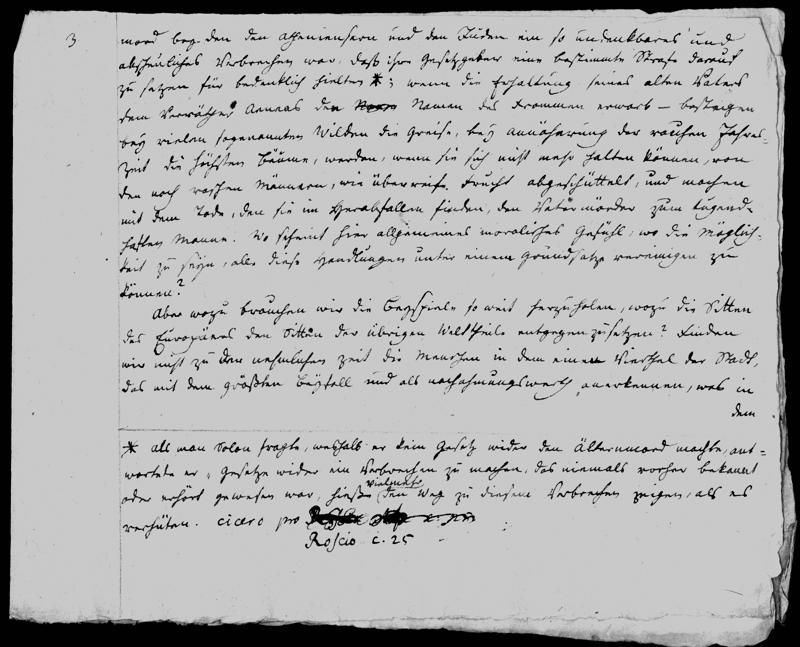 3
mord bey den den Atheniensern und den Juden ein so undenkbares und
abscheuliches Verbrechen war, daß ihre Gesetzgeber eine bestimmte Strafe darauf
zu setzen für bedenklich hielten *; wenn die Erhaltung seines alten Vaters
dem Verräther Aeneas den Namen des Frommen erwarb — besteigen
bey vielen sogenannten Wilden die Greise, bey Annäherung der rauhen Jahres-
zeit die höchsten Bäume, werden, wenn sie sich nicht mehr halten können, von
den noch raschen Männern, wie überreife Frucht abgeschüttelt, und machen
mit dem Tode, den sie im Herabfallen finden, den Vatermörder zum tugend-
haften Manne. Wo scheint hier allgemeines moralisches Gefühl, wo die Möglich-
keit zu seyn, alle diese Handlungen unter einem Grundsatze vereinigen zu
können?
Aber wozu brauchen wir die Beyspiele so weit herzuholen, wozu die Sitten
des Europäers den Sitten der übrigen Welttheile entgegenzusetzen? Finden
wir nicht zu der nehmlichen Zeit die Menschen in dem einen Viertheil der Stadt,
das mit dem größten Beyfall und als nachahmungswerth anerkennen, was in
dem
* Als man Solon fragte, weshalb er kein Gesetz wider den Älternmord machte, ant-
wortete er „Gesetze wider ein Verbrechen zu machen, das niemals vorher bekannt
oder erhört gewesen war, hieße vielmehr den Weg zu diesem Verbrechen zeigen, als es
verhüten. Cicero pro
Roscio c. 25